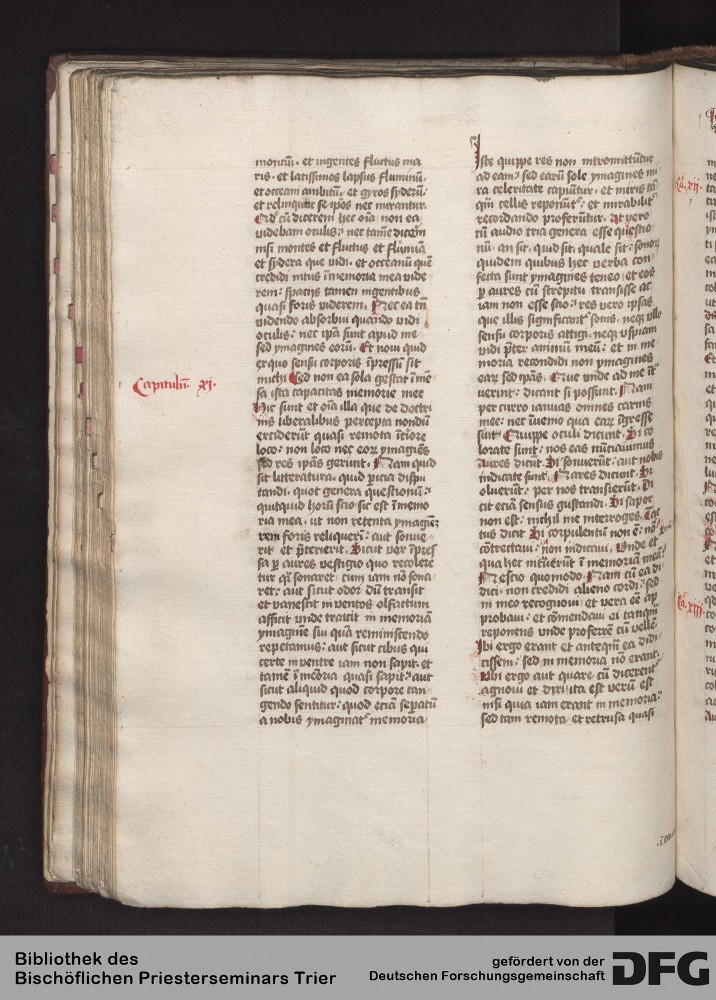 montiū · et ingentes fluctus ma
ris · et latissimos lapsus fluminū ·
et occeani ambitū · et gyros syderū :
et relinquūt se ip̄os nec mirantur ·
Qd̄ cū dicerem hec oīa non ea
videbam oculis : nec tamē dicerē
nisi montes et fluctus et flumīa
et sydera que vidi · et occeanū quē
credidi intus ī memoria mea vide
rem : spacijs tamen ingentibus
quasi foris viderem · Nec ea tn̄
videndo absorbui quando vidi
oculis : nec ip̄a sunt apud me
sed ymagines eorū · Et noui quid
ex quo sensu corporis īpressū sit
michi Sed non ea sola gestat ī mē
sa ista capacitas memorie mee
Hic sunt et oīa illa que de doctri
nis liberalibus percepta nondū
exciderūt quasi remota īteriore
loco · non loco nec eorꝝ ymagīes
sed res ip̄as gerunt · Nam quid
sit litteratura · quid pericia dispu
tandi · quot genera questionū :
quitquid horū scio sic est ī memo
ria mea · ut non retenta ymagīe
rem foris reliquerī : aut sonue
rit et p̄terierit · Sicut vox īpres
sa ꝑ aures vestigio quo recolere
tur q̄si sonaret · cum iam nō sona
ret : aut sicut odor dū transit
et vanescit in ventos olfactum
afficit vnde traicit in memoriā
ymaginē sui quā reminiscendo
repetamus : aut sicut cibus qui
certe in ventre iam non sapit · et
tamē ī mēoria quasi sapit : aut
sicut aliquid quod corpore tan
gendo sentitur · quod eciā sepatū
a nobis ymaginat᷒ memoria ·
Capitulū xi ·
Iste quippe res non intromittūtur
ad eam : sed earū sole ymagines mi
ra celeritate capiūtur · et miris tā
q̄m cellis reponūt᷒ : et mirabilit᷒
recordando proferūtur · At vero
cū audio tria genera esse questio
nū · an sit · quid sit · quale sit : sonorꝝ
quidem quibus hec verba con
fecta sunt ymagines teneo · et eos
ꝑ aures cū strepitu transisse ac
iam non esse scio : res vero ipsas
que illis significant᷒ sonis · neqꝫ vllo
sensu corporis attigi · neqꝫ vspiam
vidi p̄ter animū meū : et in me
moria recondidi non ymagines
earꝝ sed ip̄as · Que vnde ad me īt
uerint · dicant si possunt · Nam
percurro ianuas omnes carnis
mee : nec īuenio qua earꝝ īgresse
sunt · Quippe oculi dicunt · Si co
lorate sunt : nos eas nūciauimus
Aures dicūt · Si sonuerūt : aut nobis
indicate sunt · Nares dicunt · Si
oluerūt : per nos transierūt · Di
cit eciā sensus gustandi · Si sapor
non est : nichil me interroges · Tac
tus dicit Si corpulentū non ē : nō
cōtrectaui : non indicaui · Vnde et
qua hec intrauerūt ī memoriā meā
Nescio quomodo · Nam cū ea di
dici · non credidi alieno cordi : sed
in meo recognoui · et vera eē ap
probaui : et cōmendaui ei tanquā
reponens vnde proferrē cū vellē
Ibi ergo erant et anteq̄m ea didi
cissem : sed in memoria nō erant ·
Vbi ergo aut quare cū dicerent᷒
agnoui et dixi ita est verū est
nisi quia iam erant in memoria ·
sed tam remota et retrusa quasi
Ca. xij ·
Ca. xiij
Bibliothek des
Bischöflichen Priesterseminars Trier
gefördert von der
Deutschen Forschungsgemeinschaft
DFG